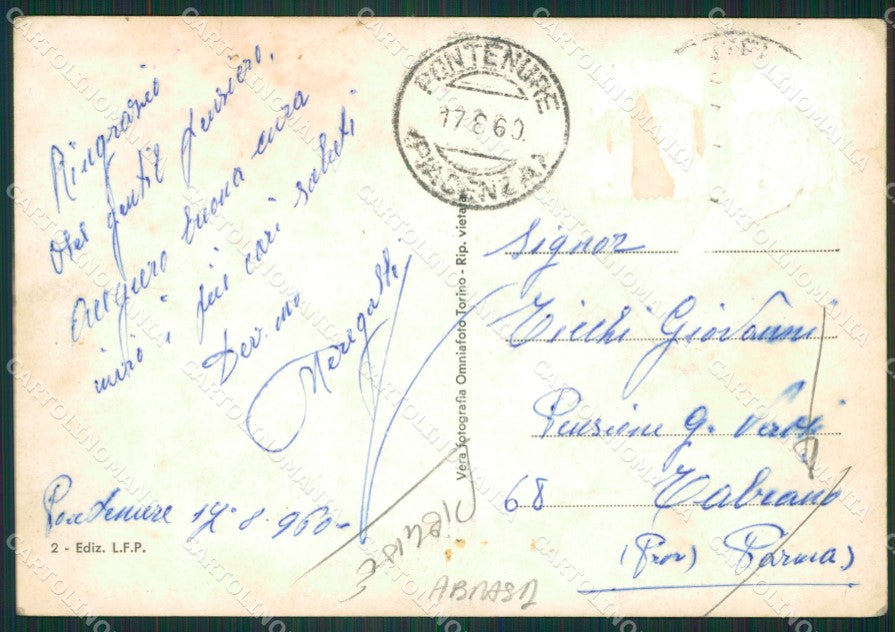 Ringrazio
del gentil pensiero,
Auguro buona cura
invio i più cari saluti
Dev.mo
Meregalli
Pontenure 17-8-960-
2 - Ediz. L.F.P.
Vera fotografia Omniafoto Torino - Rip. vietata
PONTENURE
17.8.60
(PIACENZA)
Signor
Ticchi Giovanni
Pensione G. Verdi
68 Tabiano
(Prov) Parma)
ABRASA
CARTOLINOMANIA